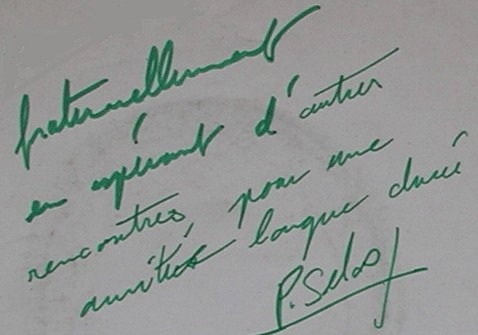 fraternellement
en espérant d'autres
rencontres, pour une
amitié longue durée
P. Selos